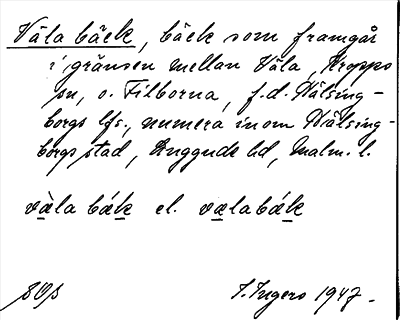 Väla bäck, bäck som framgår
i gränsen mellan Väla, Kropps
sn, o. Filborna, f.d. Hälsing-
borgs lfs., numera inom Hälsing-
borgs stad, Luggude hd, Malm. l.
vàla bák el. vælabák
S. Ingers 1947.